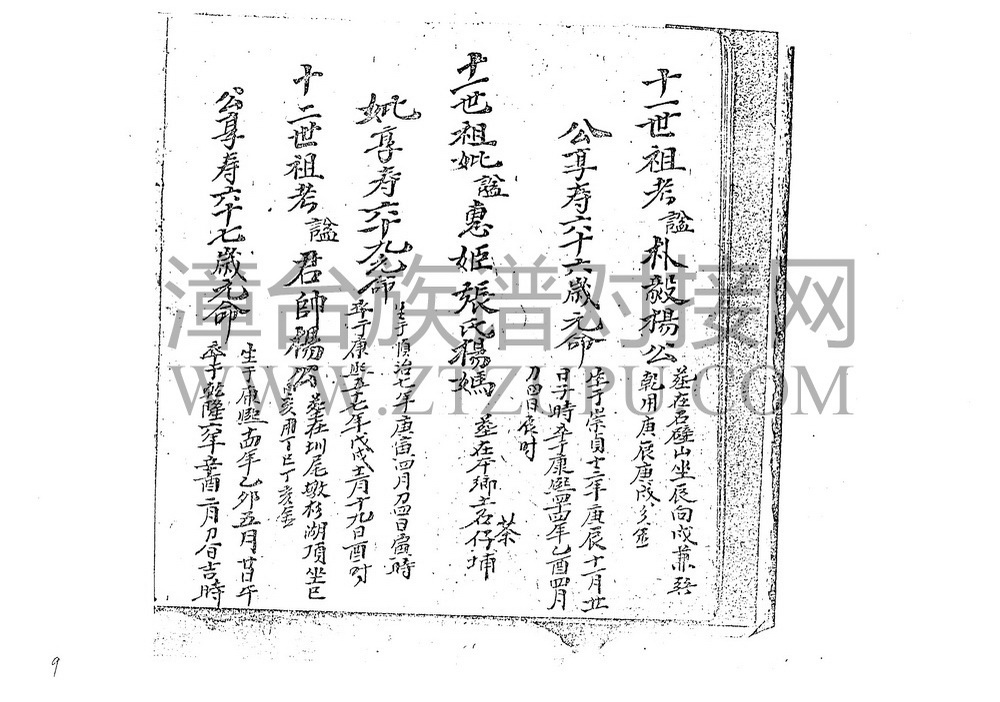 十一世祖考諡朴毅楊公
葬在石壁山坐辰向戌兼巽
乾用庚辰庚戌分金
公享寿六十六歲元命
生于崇貞十三年庚辰十一月廿
日子時卒于康熙四十四年乙酉四月
初四日辰时
十一世祖妣諡惠姬張氏楊媽
葬在本鄉土名仔埔
茶
妣享寿六十九元命
生于順治七年庚寅四月初四日寅時
卒于康熙五十七年戊戌十二月十九日酉时
十二世祖考諡君帥楊公
葬在圳尾墩杉湖頂坐巳
向亥用丁巳丁亥分金
公享寿六十七歲元命
生于康熙十四年乙卯五月廿日午
卒于乾隆六年辛酉二月初八日吉時
漳台族谱对接网
WWW.ZTZUPU.COM
9